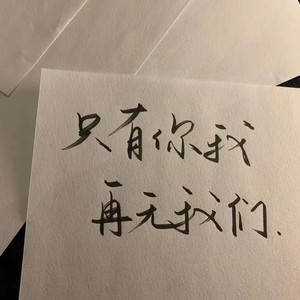 只有你我
再无我们.